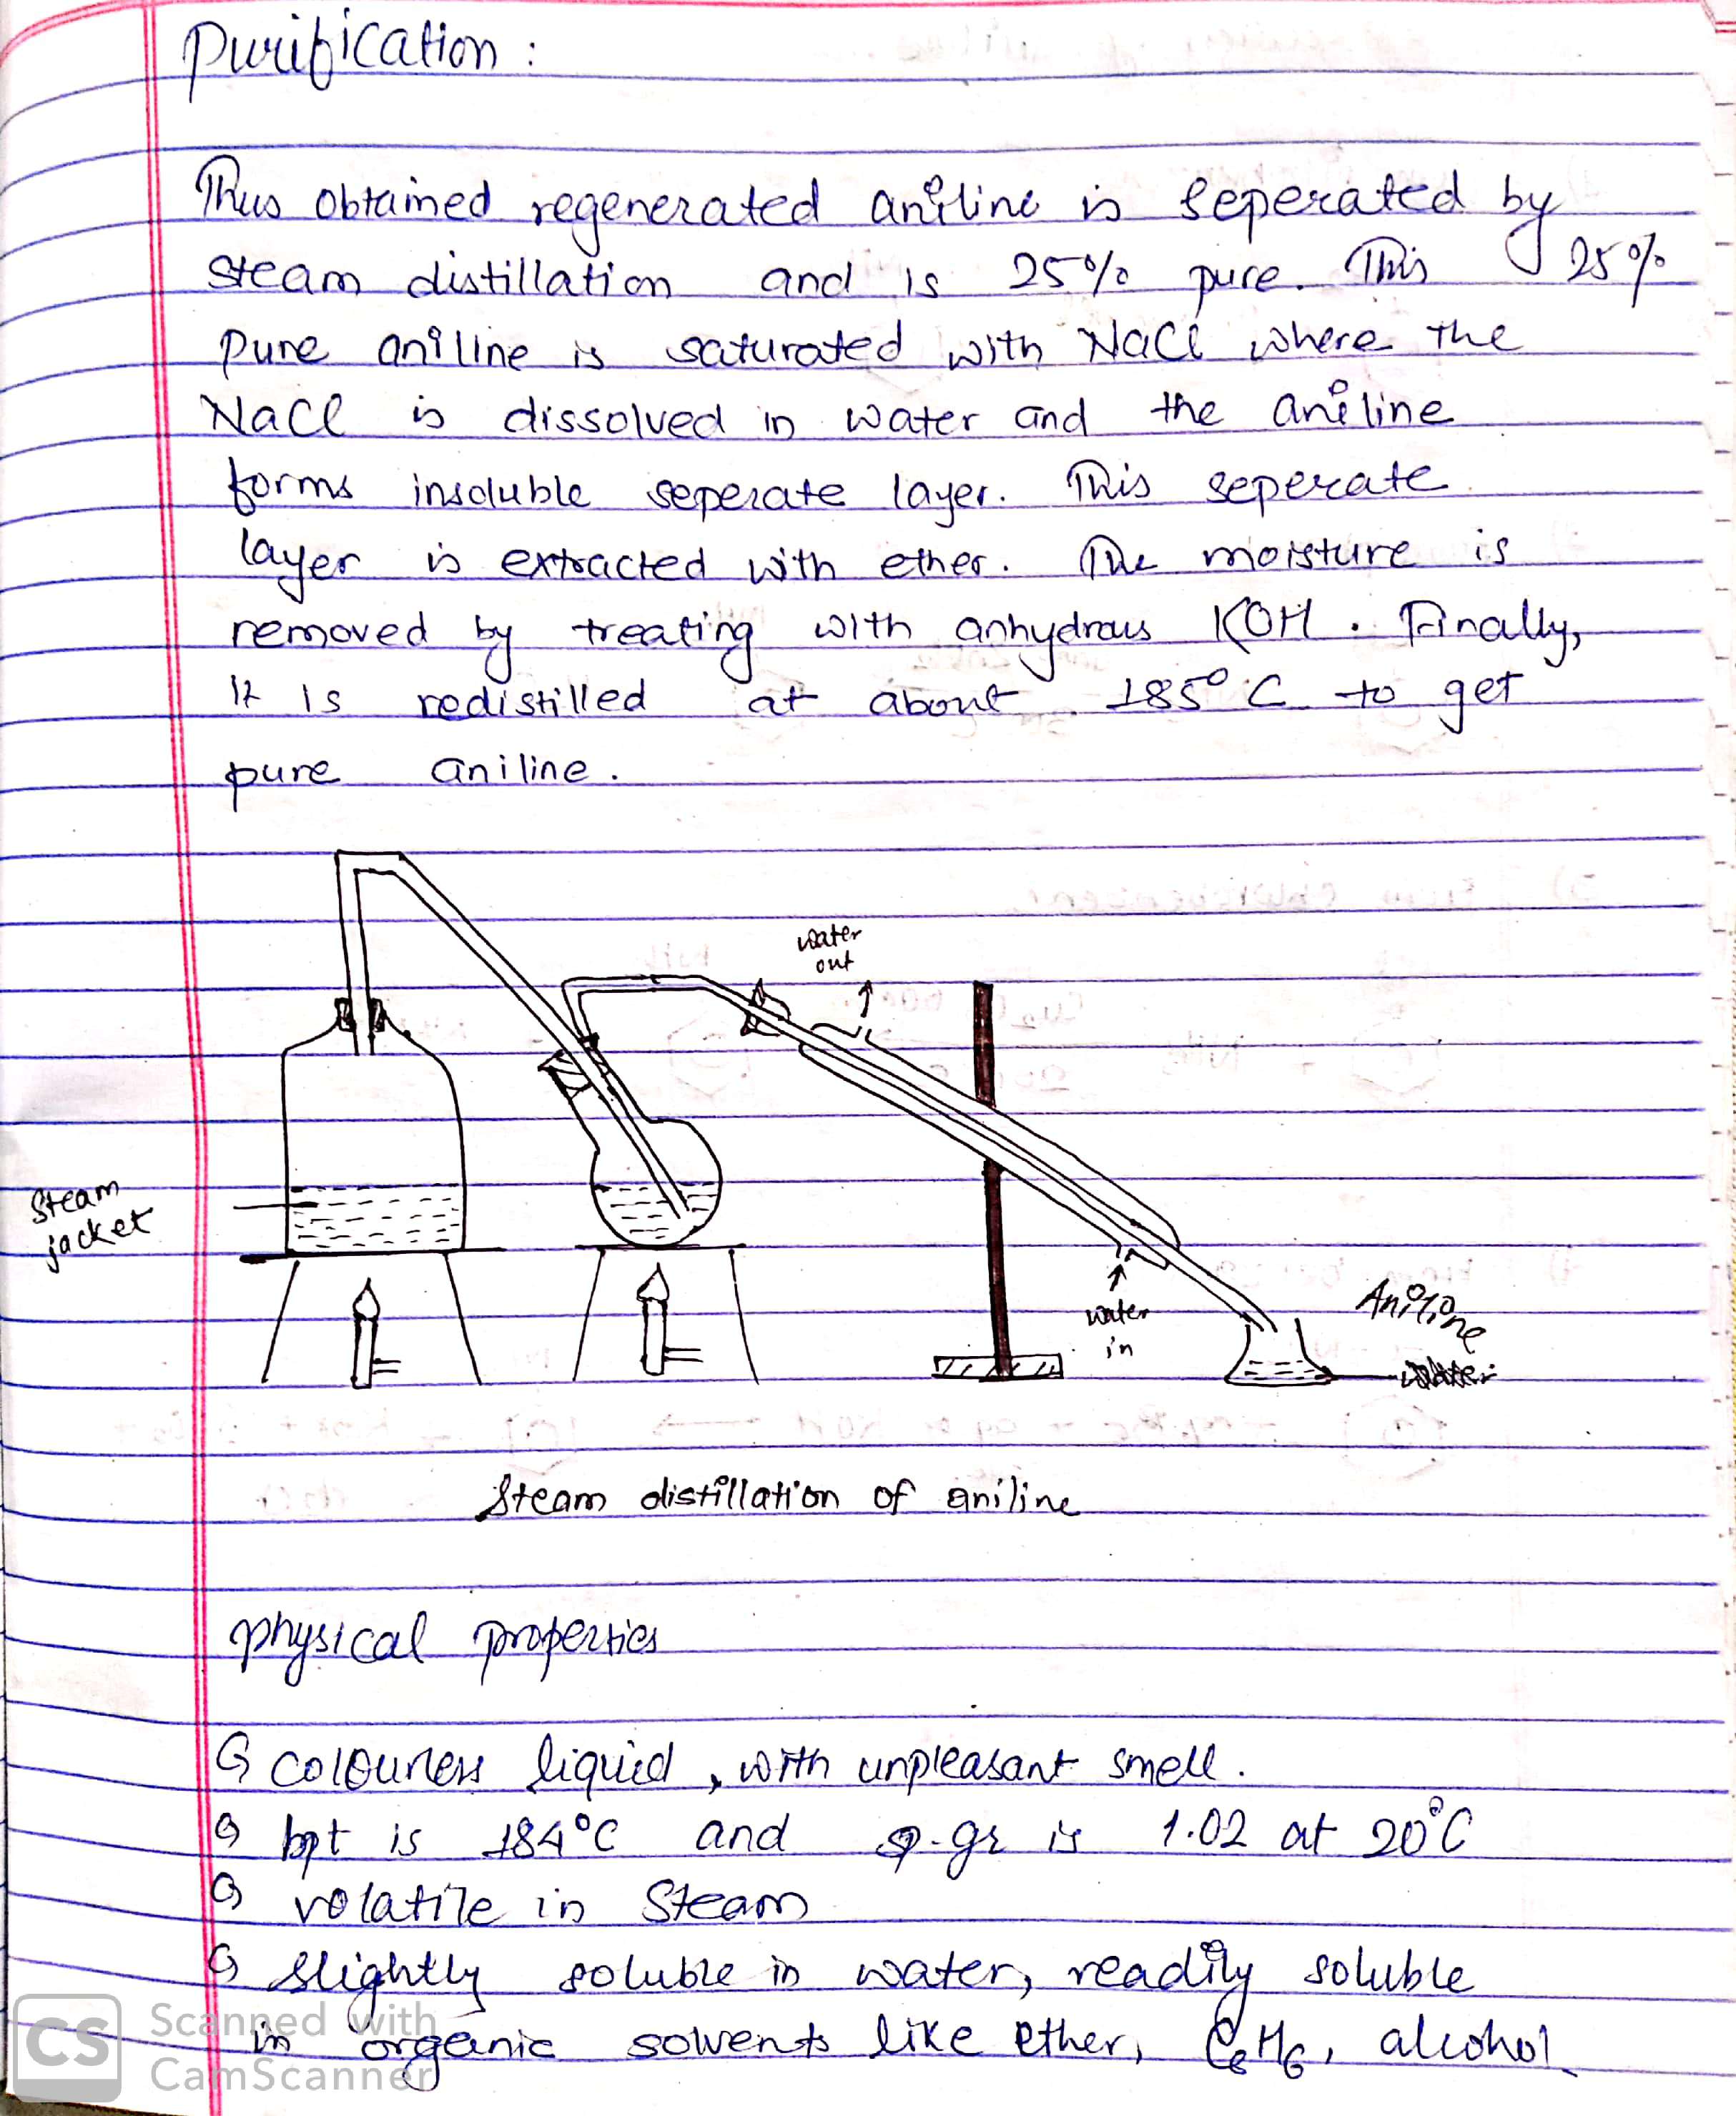 Purification :
Thus obtained regenerated aniline is seperated by
steam distillation and is 25% pure. This 25%
pure aniline is saturated with NaCl where the
NaCl is dissolved in water and the aniline
forms insoluble seperate layer. This seperate
layer is extracted with ether. The moisture is
removed by treating with anhydrous KOH. Finally,
It is redistilled at about 185°C to get
pure aniline.
water
out
Steam
jacket
water
in
Aniline
water
Steam distillation of aniline
physical properties
colourless liquid, with unpleasant smell.
bpt is 184°C and sp.gr is 1.02 at 20°C
volatile in steam
slightly soluble in water, readily soluble
in organic solvents like ether, C6H6, alcohol
CS Scanned with
CamScanner